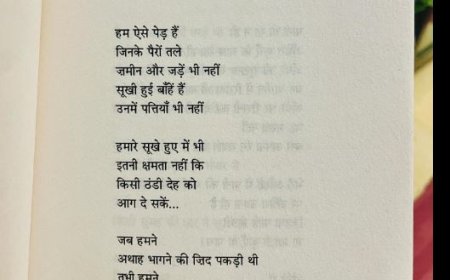 हम ऐसे पेड़ हैं
जिनके पैरों तले
ज़मीन और जड़ें भी नहीं
सूखी हुई बाँहें हैं
उनमें पत्तियाँ भी नहीं
हमारे सूखे हुए में भी
इतनी क्षमता नहीं कि
किसी ठंडी देह को
आग दे सकें...
जब हमने
अथाह भागने की ज़िद पकड़ी थी
तभी हमने